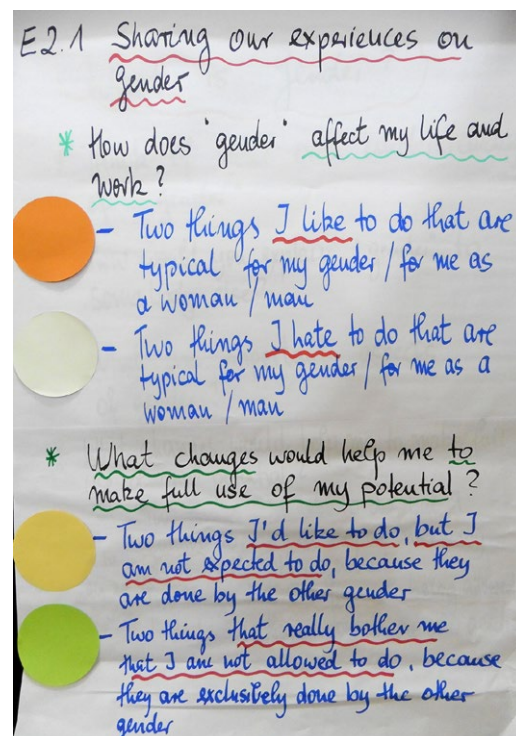 E2.1 Sharing our experiences on
gender
* How does 'gender' affect my life and
work?
- Two things I like to do that are
typical for my gender / for me as
a woman / man
- Two things I hate to do that are
typical for my gender / for me as a
woman / man
* What changes would help me to
make full use of my potential?
- Two things I'd like to do, but I
am not expected to do, because they
are done by the other gender
- Two things that really bother me
that I am not allowed to do, because
they are exclusively done by the other
gender